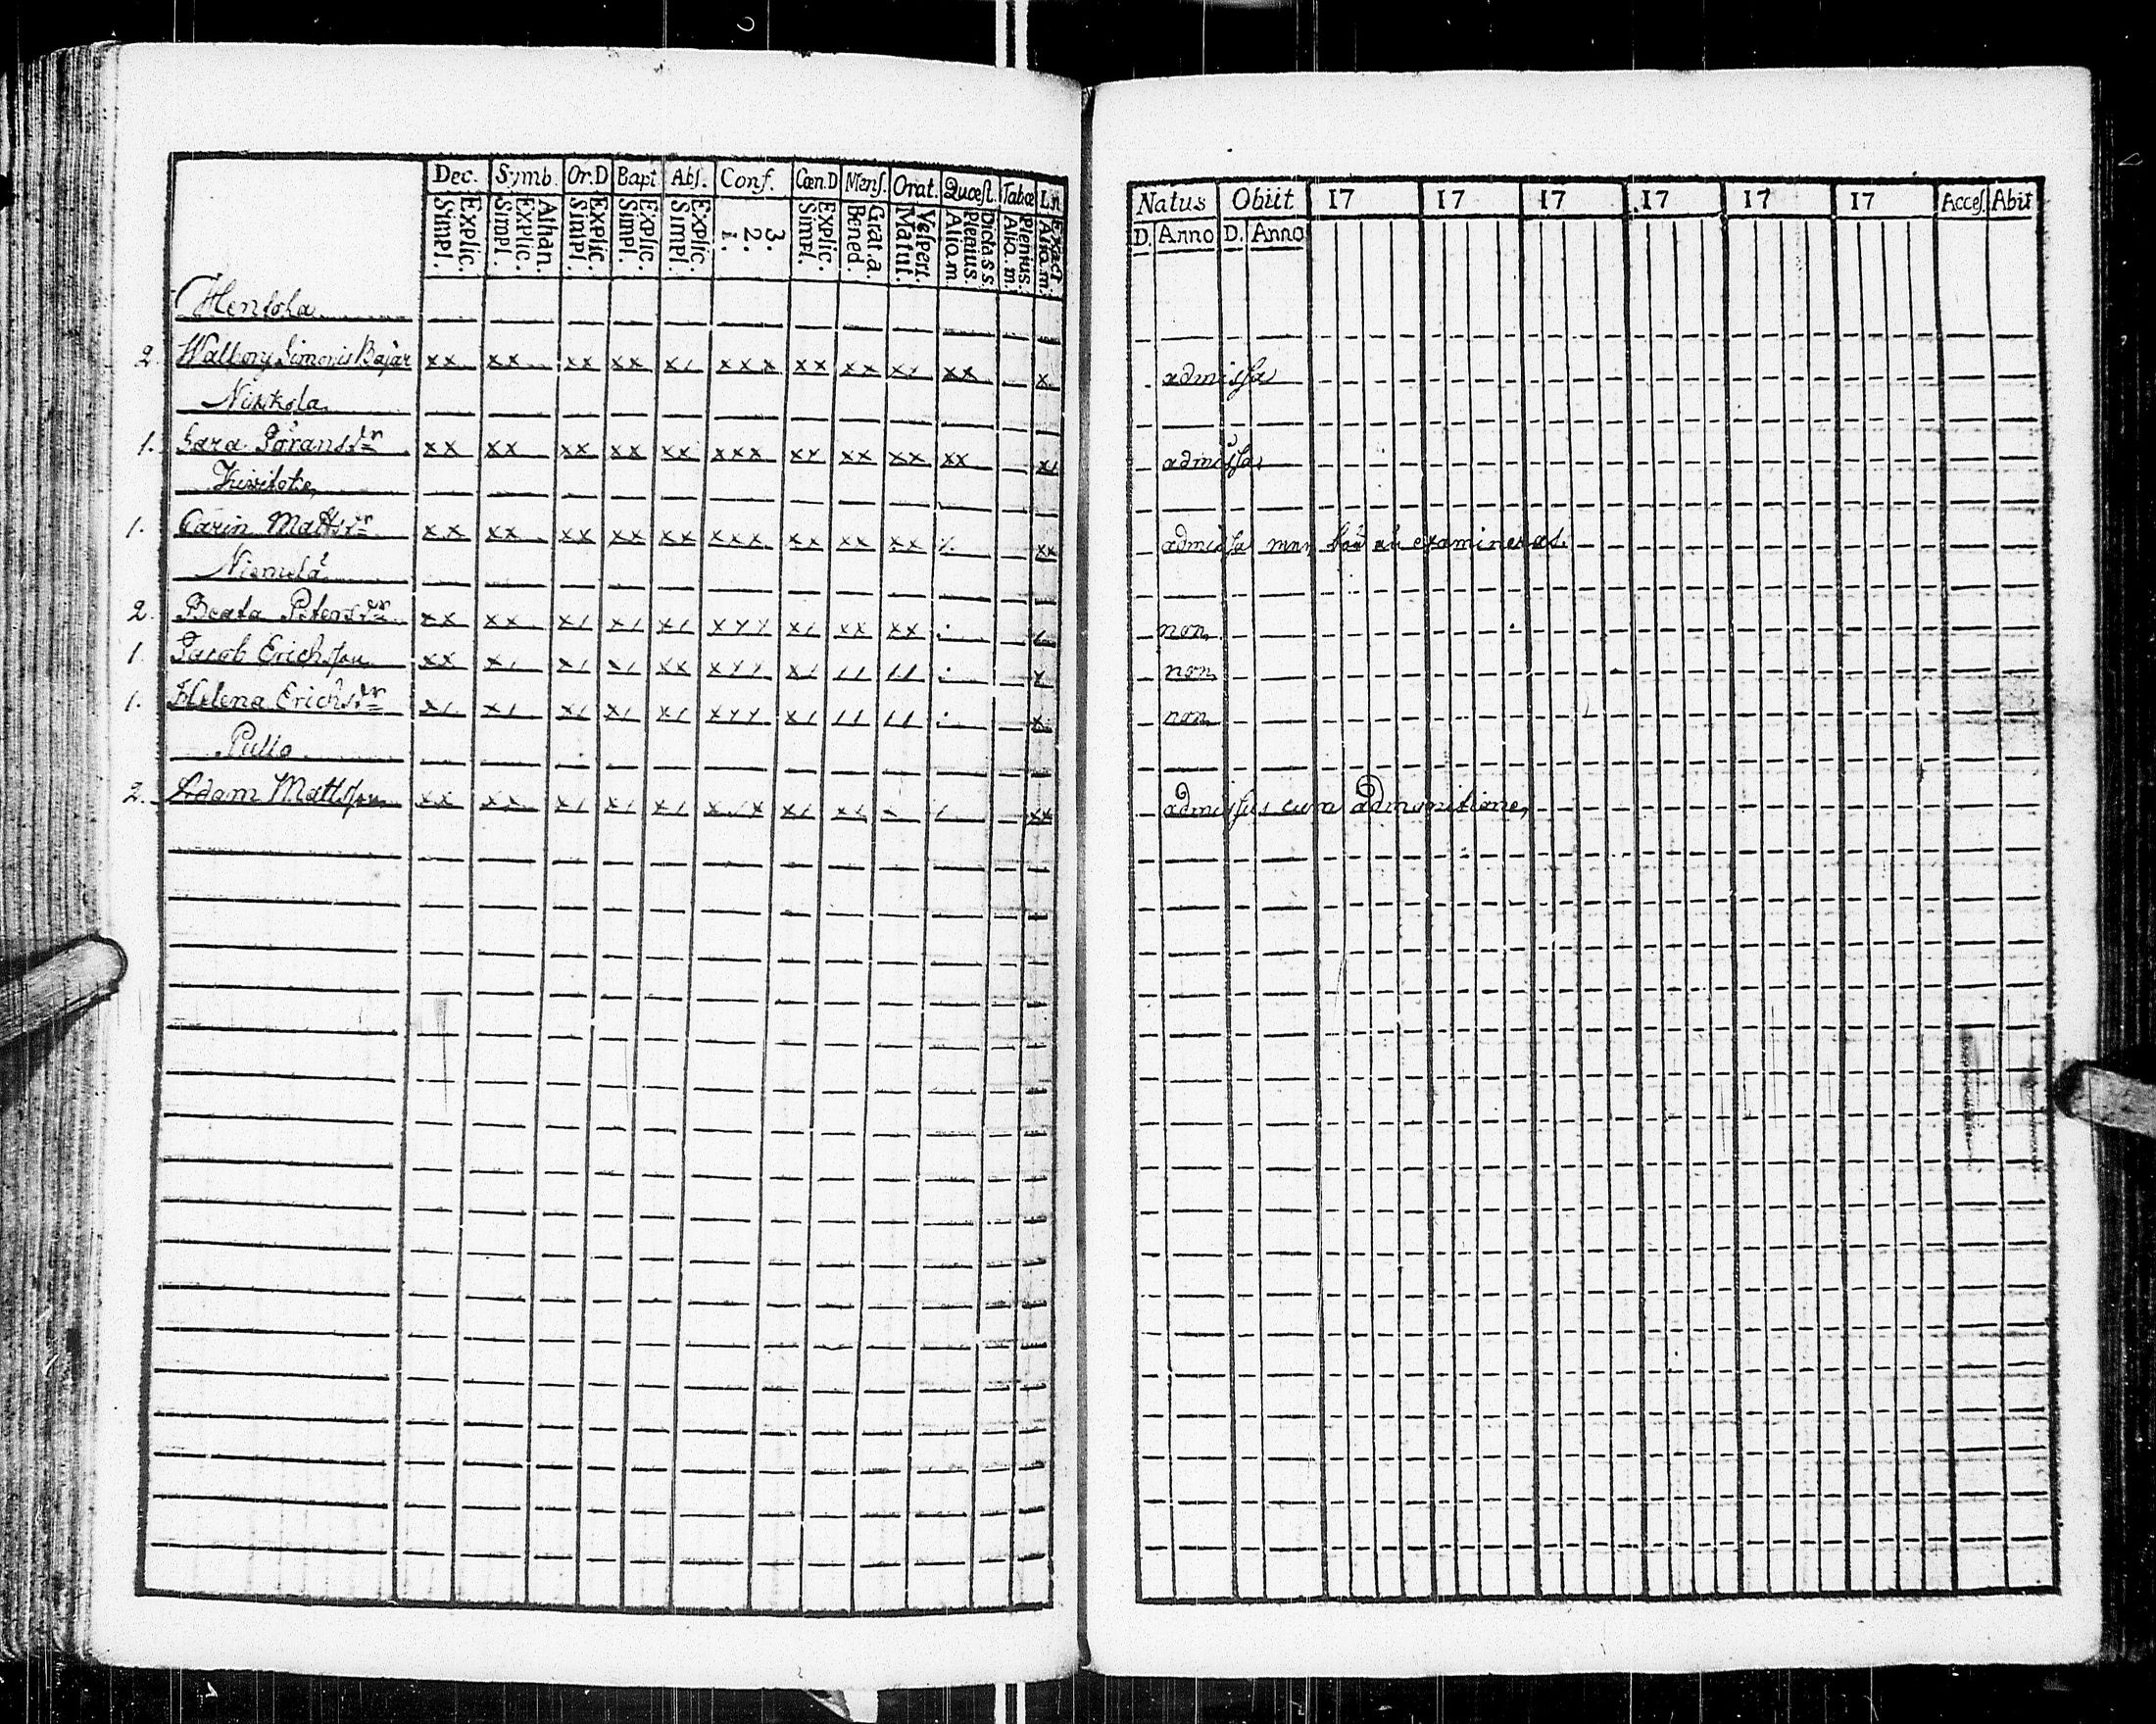 Dec. Symb. Or.D Bapt. Abſ. Conf. Cœn.D Menſ. Orat. Quæſt. Tabœ L.n.
Explic. Simpl. Athan. Explic. Simpl. Explic. Simpl. Explic. Simpl. Explic. Simpl. 3. 2. 1. Explic. Simpl. Grat.a. Bened. Veſpert. Matut. Dicta s s. Plenius. Aliq.m. Plenius. Aliq.m. Exact. Aliq.m.
2. Walbory Simonis Bajar xx xx xx xx x/ xxx xx xx x/ xx x
Nikkola
1. Sara Göransdr xx xx xx xx xx xxx xx xx xx xx x/
1. Carin Mattsdr xx xx xx xx xx xxx xx xx xx /. xx
Niemelä
2. Beata Petersdr xx xx x/ x/ x/ xyy x/ xx xx
1. Jacob Erichsson xx x/ x/ x/ xx xyy x/ // //
1. Helena Erichsdr x/ x/ x/ x/ x/ xyy x/ // // x
Pullo
2. Adam Mattsson xx xx x/ x/ x/ x/x x/ xx - / xx
Natus Obiit 17 17 17 17 17 17 Acceſ. Abit
D. Anno D. Anno
admiſsa
admiſsa
admiſsa men bör examineras.
non
non
non
admiſsus cum admonitione,